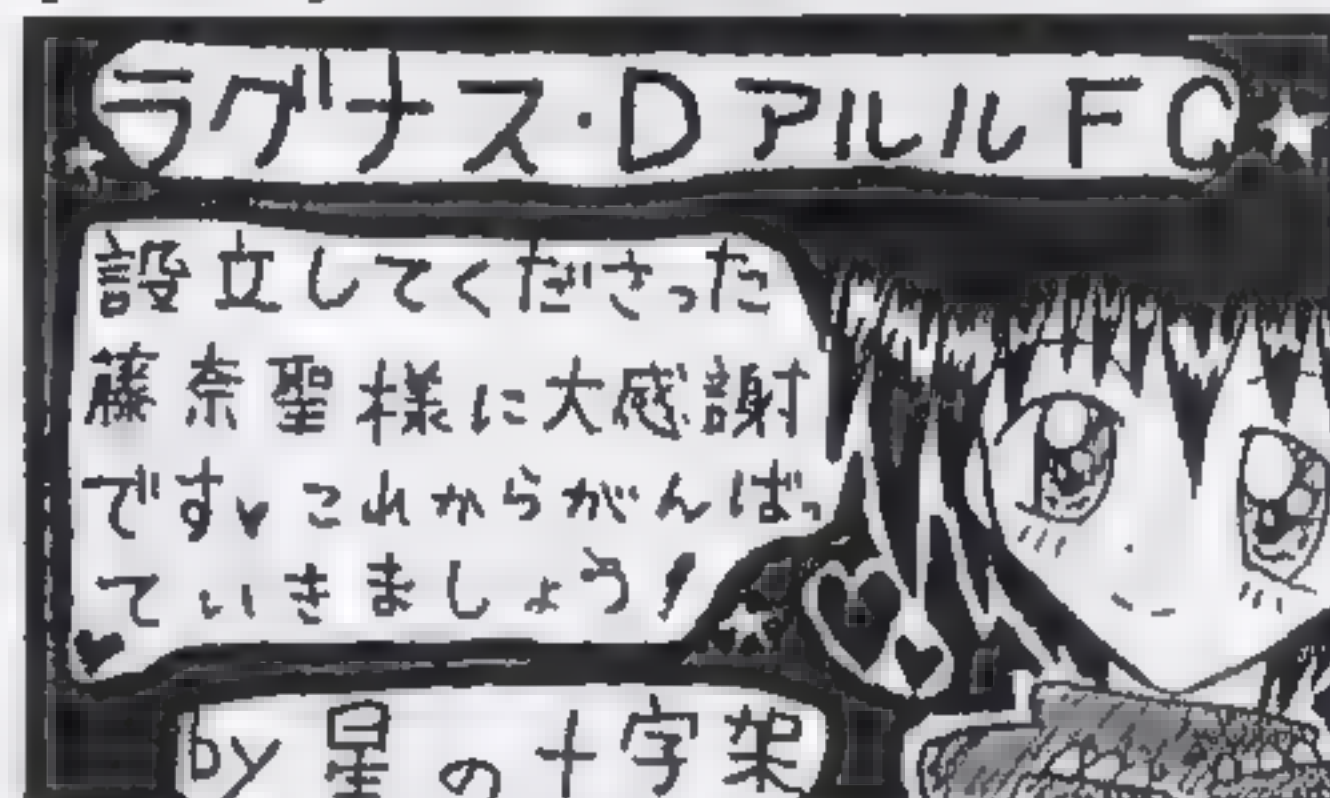 ラグナス・DアルルFC
設立してくださった
藤奈聖様に大感謝
です♥これからがんばっ
ていきましょう!
by 星の十字架